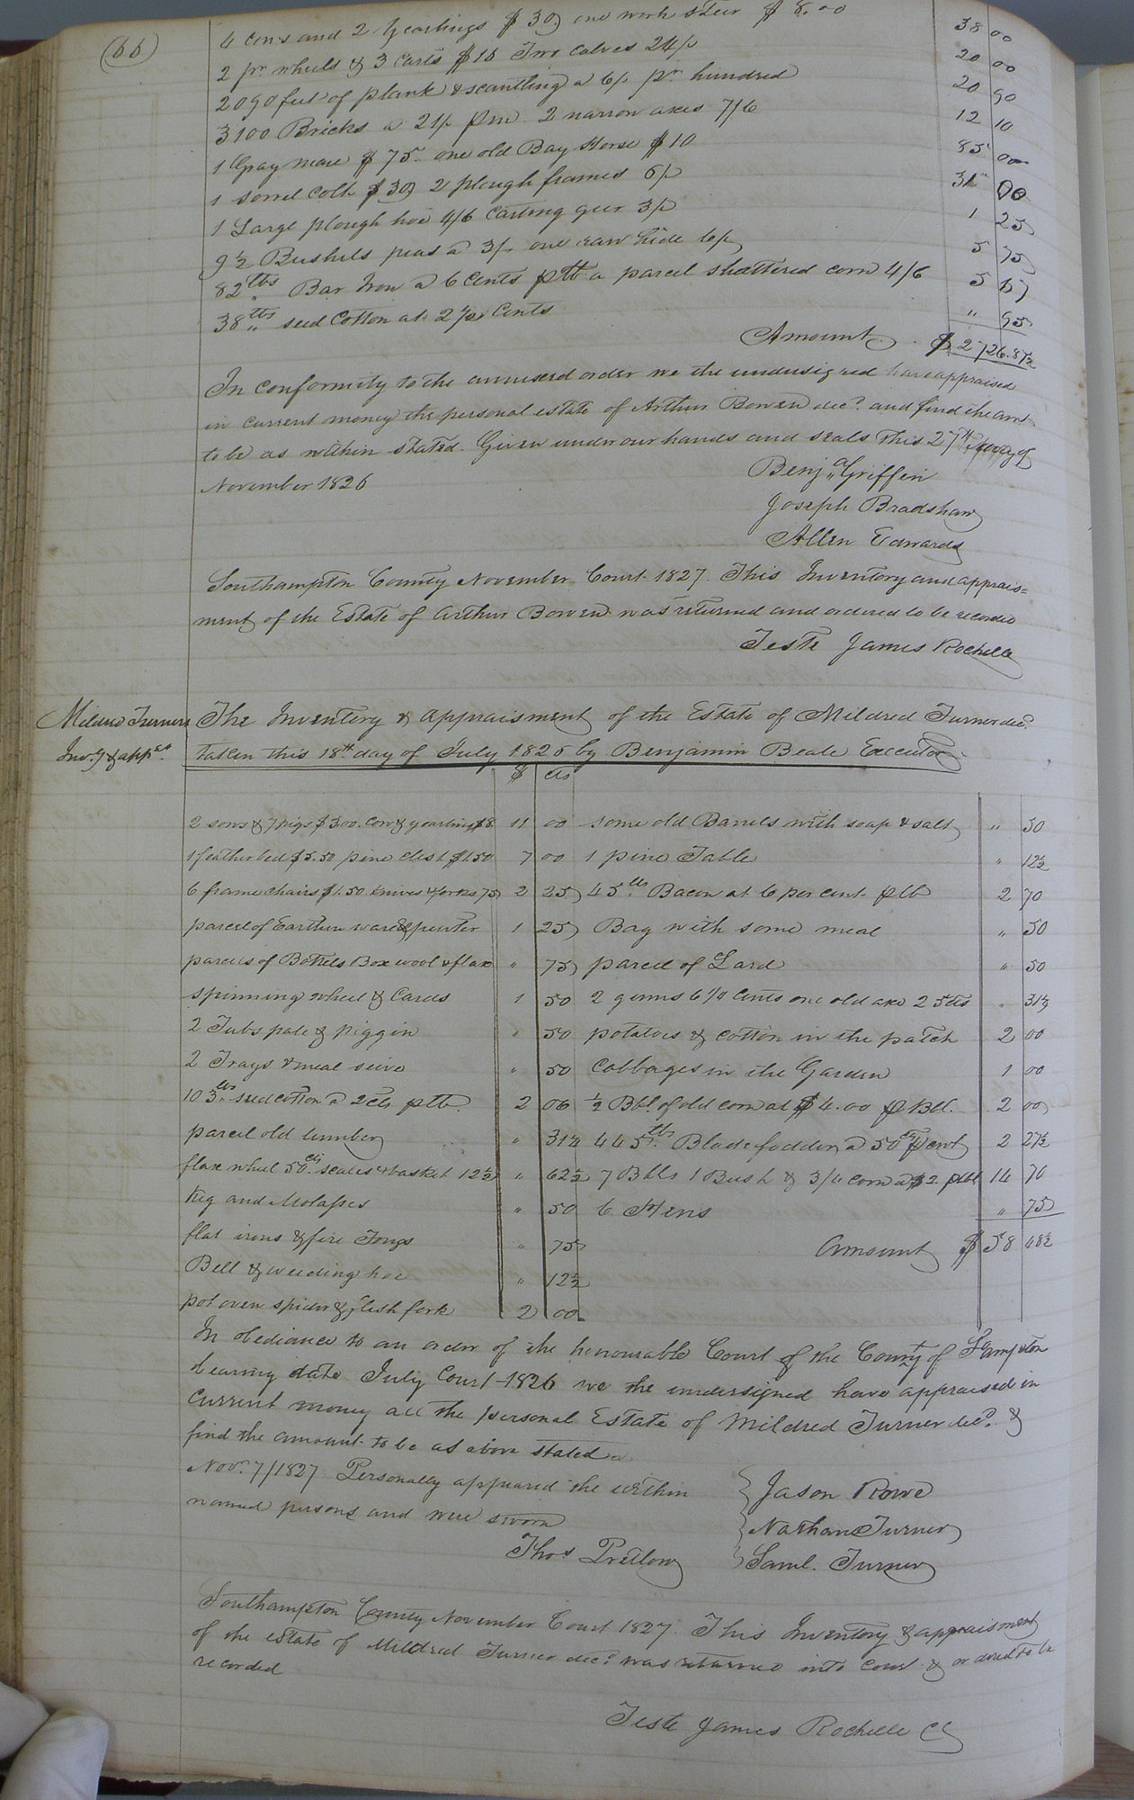 (66)
4 cows and 2 yearlings $30, one work steer $8.00 38 00
2 pr. wheels & 3 carts $16 Two calves 24/ 20 00
2090 feet of plank & scantling a 6/ pr. hundred 20 90
3100 Bricks a 21/ pm 2 narrow axes 7/6 12 10
1 Gray mare $75 one old Bay Horse $10 85 00
1 sorrel colt $30, 2 plough frames 6/ 31 00
1 Large plough hoe 4/6 carting geer 3/ 1 25
9½ Bushels peas a 3/ one raw hide 6/ 5 75
82 lbs. Bar Iron a 6 cents plb a parcel shattered corn 4/6 5 67
38 lbs seed Cotton at 2½ cents " 95
Amount $2726.81½
In conformity to the annexed order we the undersigned have appraised
in current money the personal estate of Arthur Bowen decd. and find the amt.
to be as within stated. Given under our hands and seals this 27th day of
November 1826
Benja. Griffin
Joseph Bradshaw
Allen Edwards
Southampton County November Court 1827. This Inventory and apprais=
ment of the Estate of Arthur Bowen was returned and ordered to be recorded
Teste James Rochelle
Mildred Turners The Inventory & appraisment of the Estate of Mildred Turner decd.
Invy & appt. taken this 18th day of July 1826 by Benjamin Beale Executor
$ cts
2 sows & 7 pigs $3.00. Cow & yearling $8 11 00 some old Barrels with soap & salt " 50
1 feather bed $5.50 pine chest $1.50 7 00 1 pine Table " 12½
6 frame chairs $1.50 knives & forks 75 2 25 45 lbs Bacon at 6 per cent. plb 2 70
parcel of Earthen ware & pewter 1 25 Bag with some meal " 50
parcels of Bottels Box wool & flax " 75 parcel of Lard " 50
spinning wheel & Cards 1 50 2 gums 6¼ cents one old axe 25 cts " 31¼
2 Tubs pale & piggin " 50 potatoes & cotton in the patch 2 00
2 Trays & meal seive " 50 Cabbages in the Garden 1 00
103 lbs. seed cotton a 2 cts plb. 2 06 ½ Bbl. of old corn at $4.00 p Bbl. 2 00
parcel old lumber " 31½ 445 lbs. Blade fodder a 50 cts pcwt 2 27½
flax wheel 50 cts. scales & basket 12½ " 62½ 7 Bbls 1 Bush & 3/4 corn a $2 pbbl 14 70
Keg and Molasses " 50 6 Hens " 75
flat irons & fire Tongs " 75 Amount $58 48½
Bell & weeding hoe " 12½
pot oven spider & flesh fork 2 00
In obediance to an order of the honourable Court of the County of So.ampton
bearing date July Court 1826 we the undersigned have appraised in
current money all the personal Estate of Mildred Turner decd. &
find the amount to be as above stated
Novr. 7/1827 Personally appeared the within Jason Rowe
named persons and were sworn Nathan Turner
Thos Pretlow Saml. Turner
Southampton County November Court 1827. This Inventory & appraisment
of the estate of Mildred Turner decd. was returned into Court & ordered to be
recorded
Teste James Rochelle CC